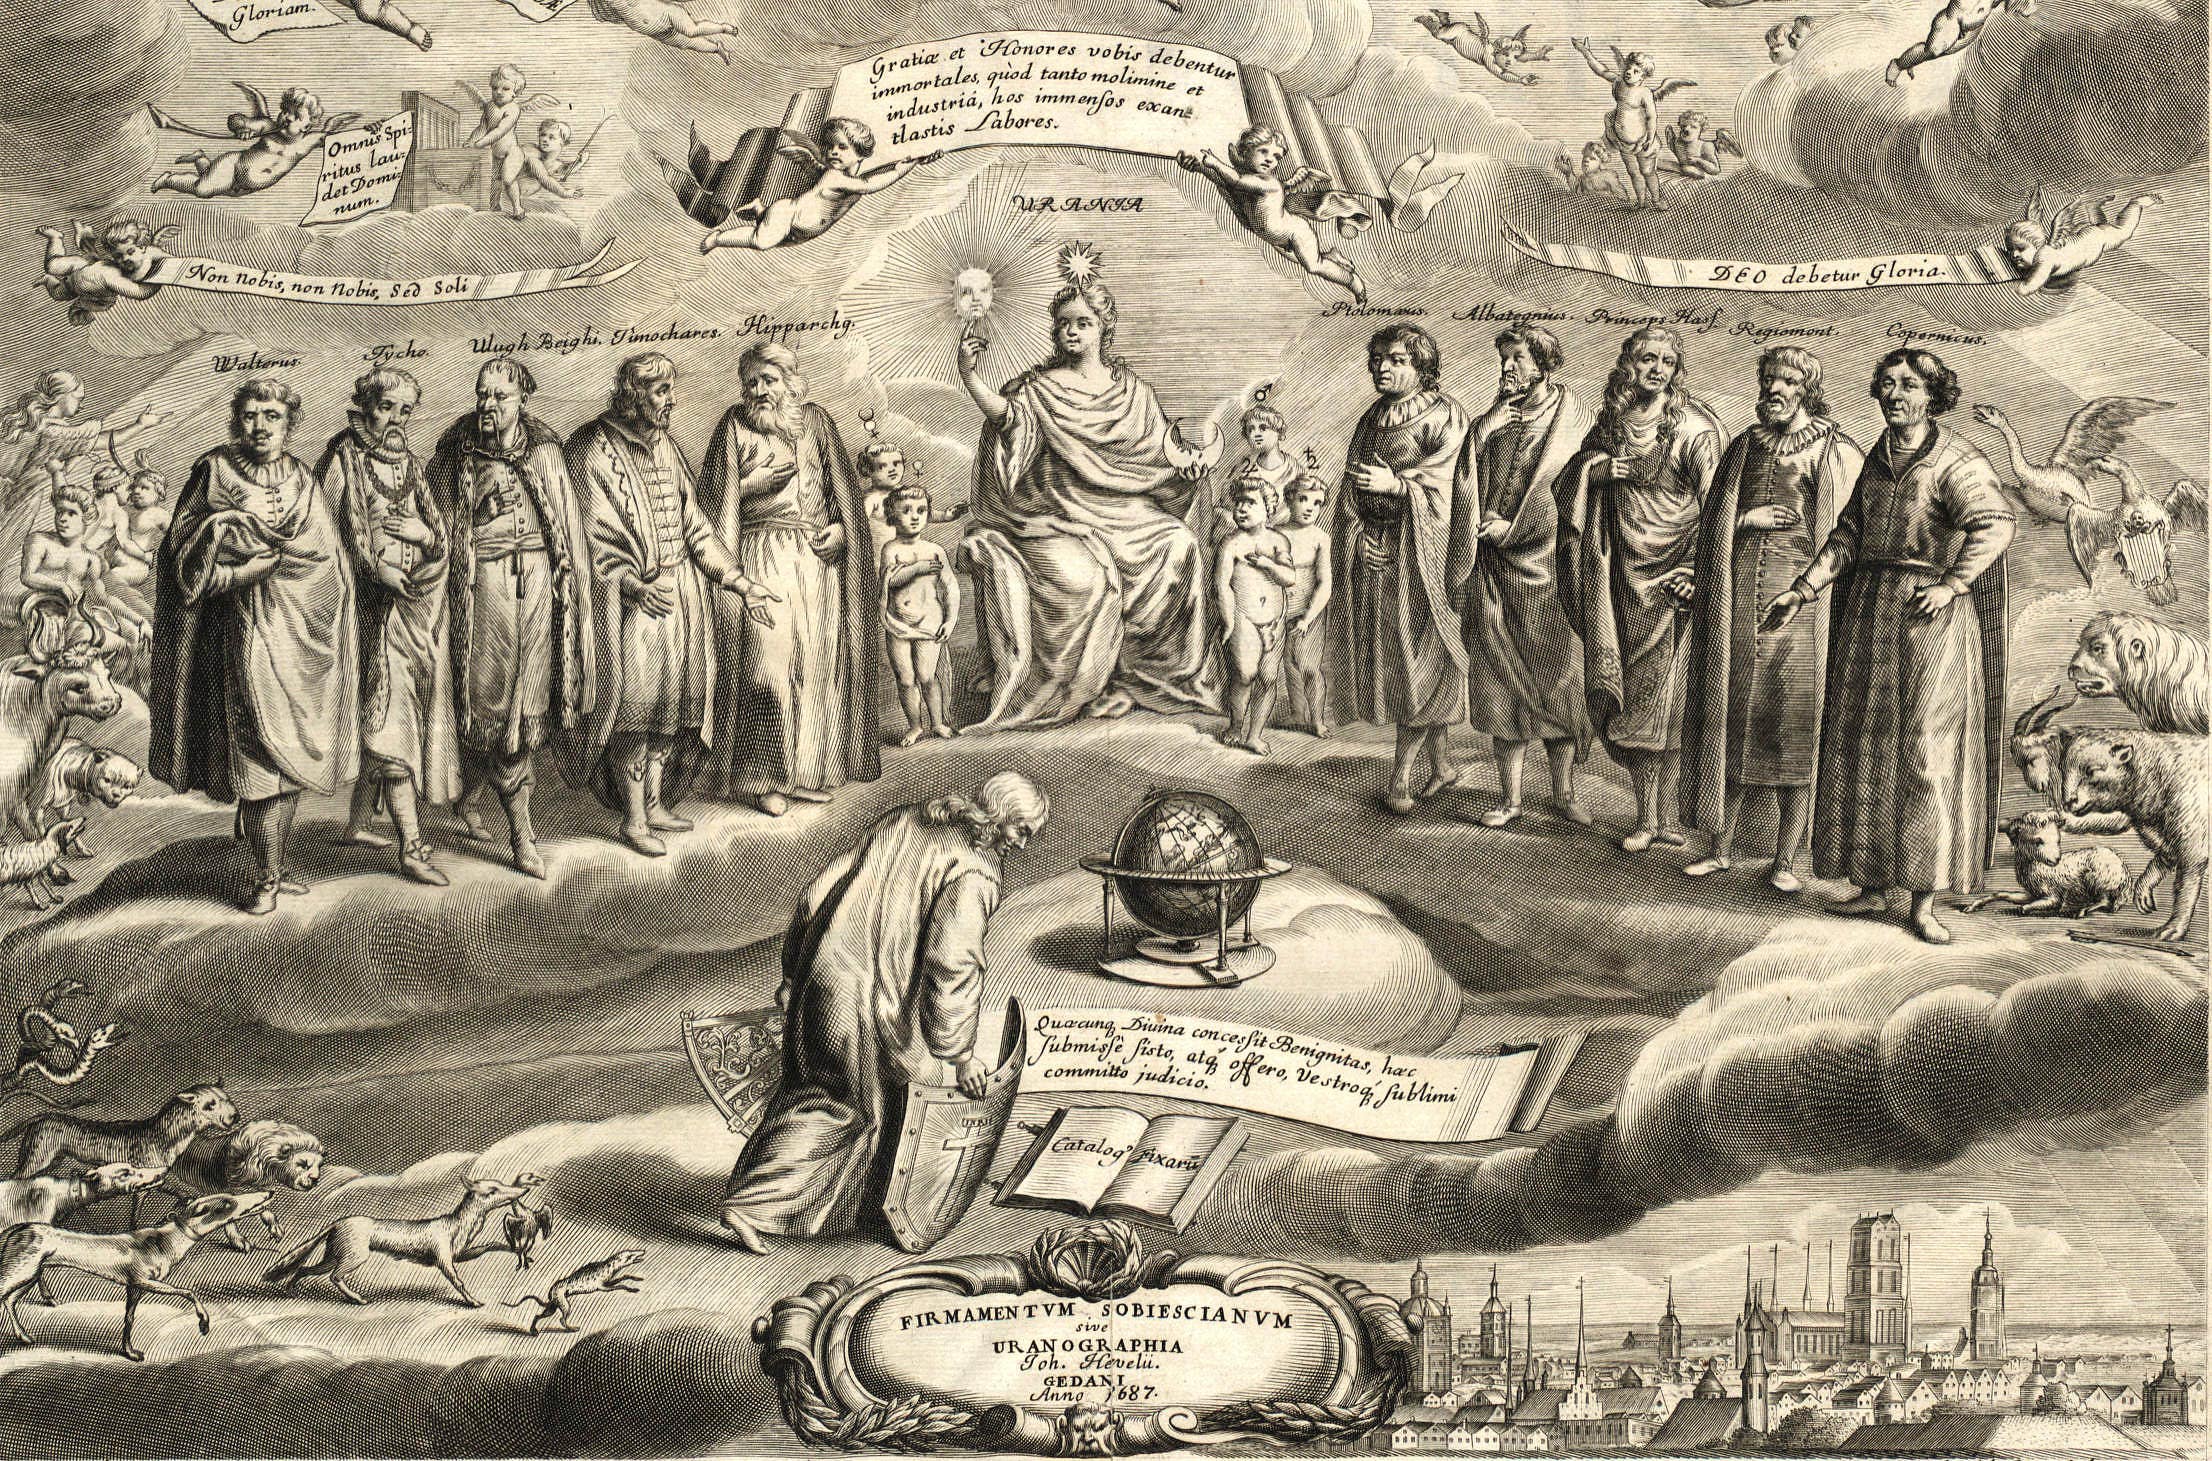 Gloriam.
Gratiæ et Honores vobis debentur
immortales, quòd tanto molimine et
industriâ, hos immensos exan-
tlastis Labores.
Omnis Spi-
ritus lau-
det Domi-
num.
URANIA
Non nobis, non nobis, Sed Soli
DEO debetur Gloria.
Walterus.
Tycho.
Ulugh Beighi.
Timochares.
Hipparchq.
Ptolomæus.
Albategnius.
Princeps Hass.
Regiomont.
Copernicus.
☿
♀
♂
♃
♄
Quæcunq; Divina concessit Benignitas, hæc
submissè sisto, atq; offero, Vestroq; sublimi
committo judicio.
INRI
Catalogꝰ Fixarũ
FIRMAMENTVM SOBIESCIANVM
sive
URANOGRAPHIA
Joh. Hevelii.
GEDANI
Anno 1687.